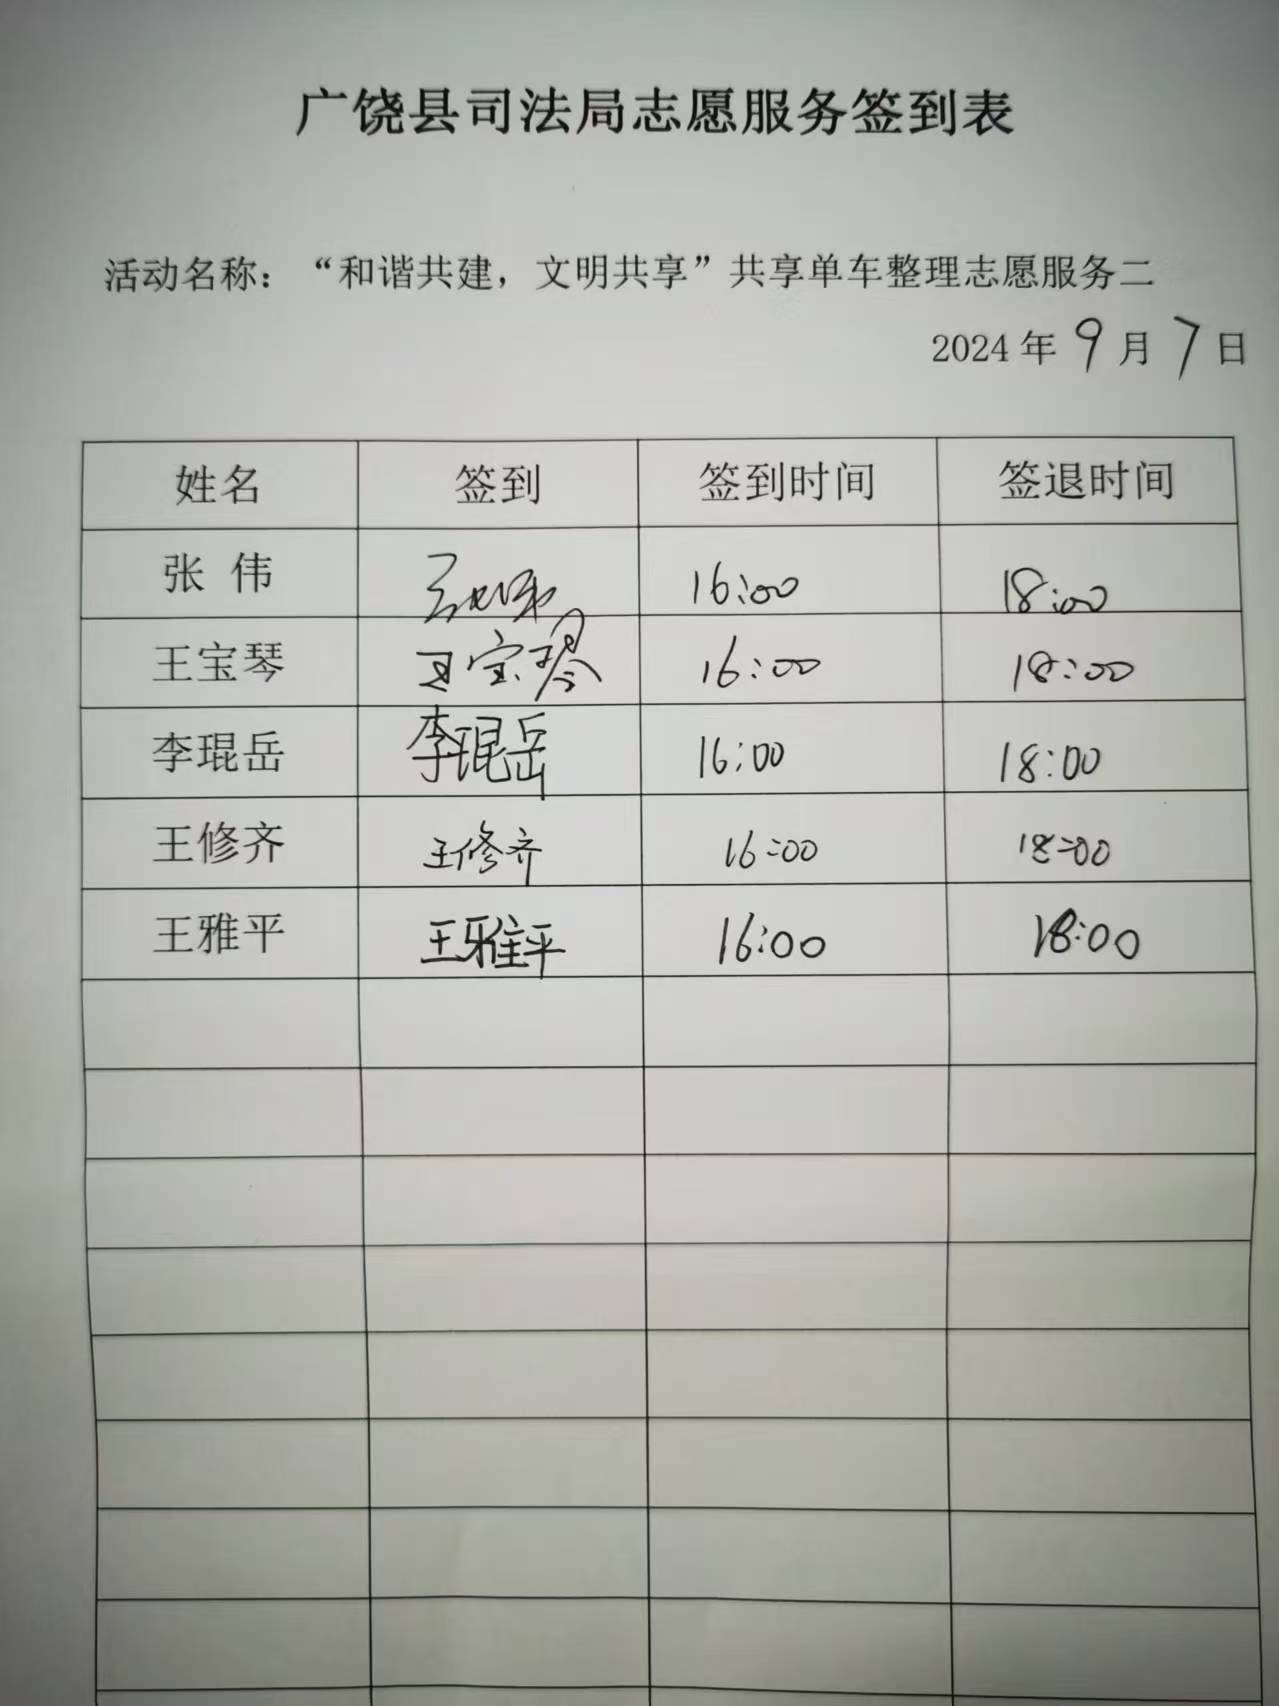 广饶县司法局志愿服务签到表
活动名称：“和谐共建，文明共享”共享单车整理志愿服务二
2024年9月7日
姓名 签到 签到时间 签退时间
张 伟 16:00 18:00
王宝琴 王宝琴 16:00 18:00
李琨岳 李琨岳 16:00 18:00
王修齐 王修齐 16:00 18:00
王雅平 王雅平 16:00 18:00